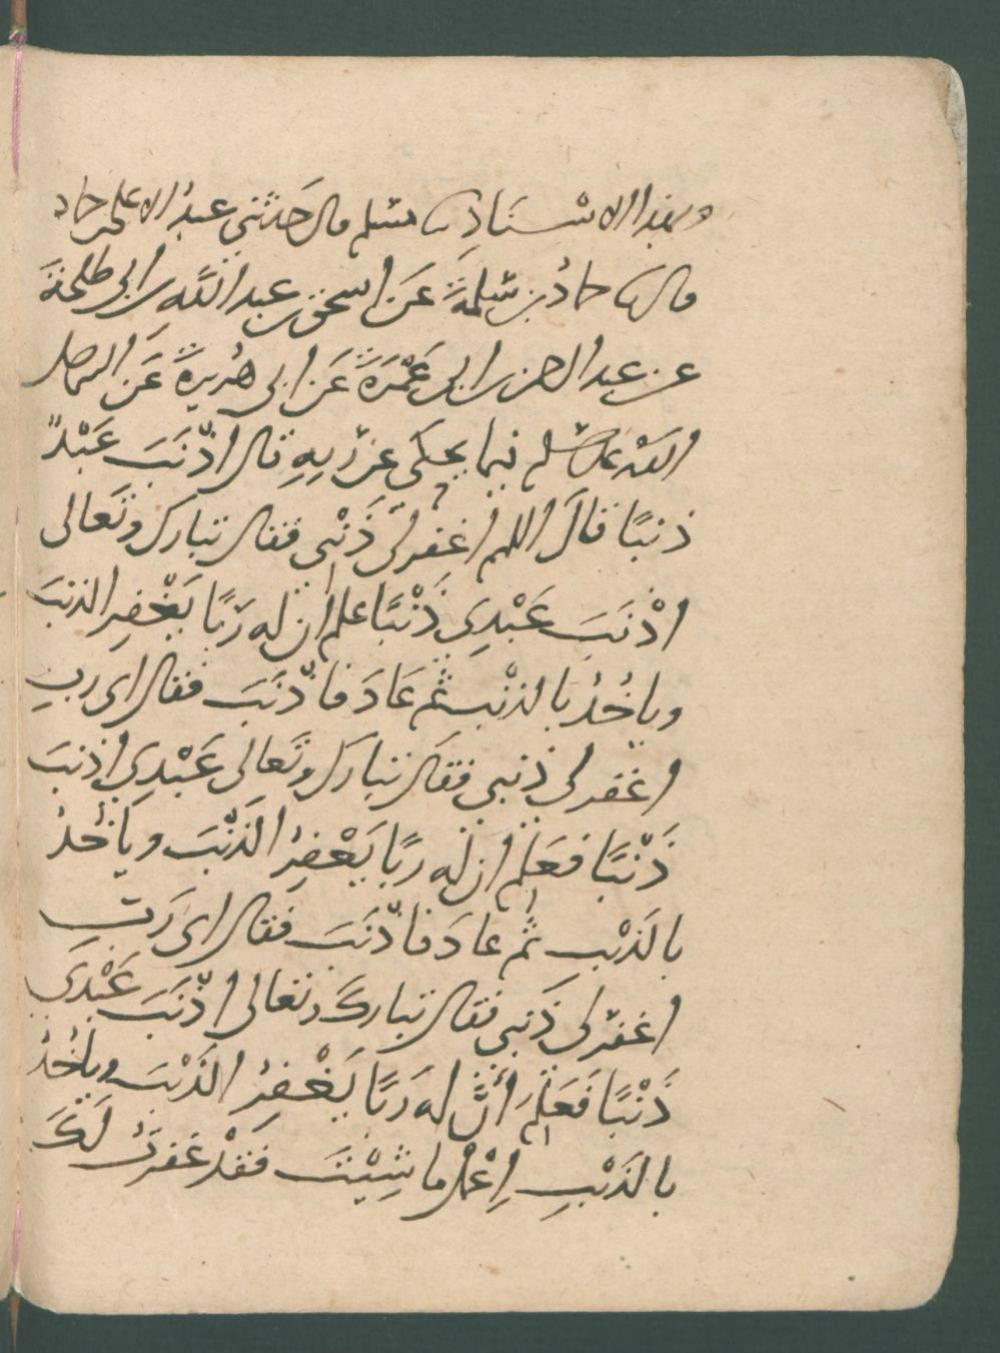 وبهذا الاسْنَادِ نا مسْلم قال حَدثني عبدُ الاعلى بن حماد
قال نا حمادُ بن سَلمةَ عَن اسحق بن عبد اللَّه بن ابي طلحَةَ
عن عبد الرحمن بن ابي عَمْرَةَ عَن ابي هُريرةَ عَن النبي صلى
اللهُ عليه وسَلم فيما يحكي عن رَبِهِ قال اذْنَبَ عَبْدٌ
ذنبًا فقَالَ اللهم اغفر لي ذَنْبي فقال تبارك وتَعالى
اذْنَبَ عَبْدِي ذَنْبًا علم ان له رَبًّا يَغْفِر الذنبَ
وياخُذُ بالذنْبِ ثم عَادَ فاذْنَبَ فقال اي ربِ
اغفر لي ذنبي فقال تبارك وتَعالى عَبْدِي اذنبَ
ذَنْبًا فعَلم ان له ربًا يَغْفِرُ الذَنْبَ ويَأخُذُ
بالذَنْبِ ثم عادَ فاذْنَبَ فقال اى رَبِ
اغفر لى ذَنبي فقال تباركَ وتعالى اذْنَبَ عَبْدِي
ذَنْبًا فَعَلِمَ أَنَّ له رَبًا يَغْفِرُ الذَنْبَ وياخُذُ
بالذَنْبِ اِعْمَل ما شِيْتَ فقدْ غَفرتُ لَكَ